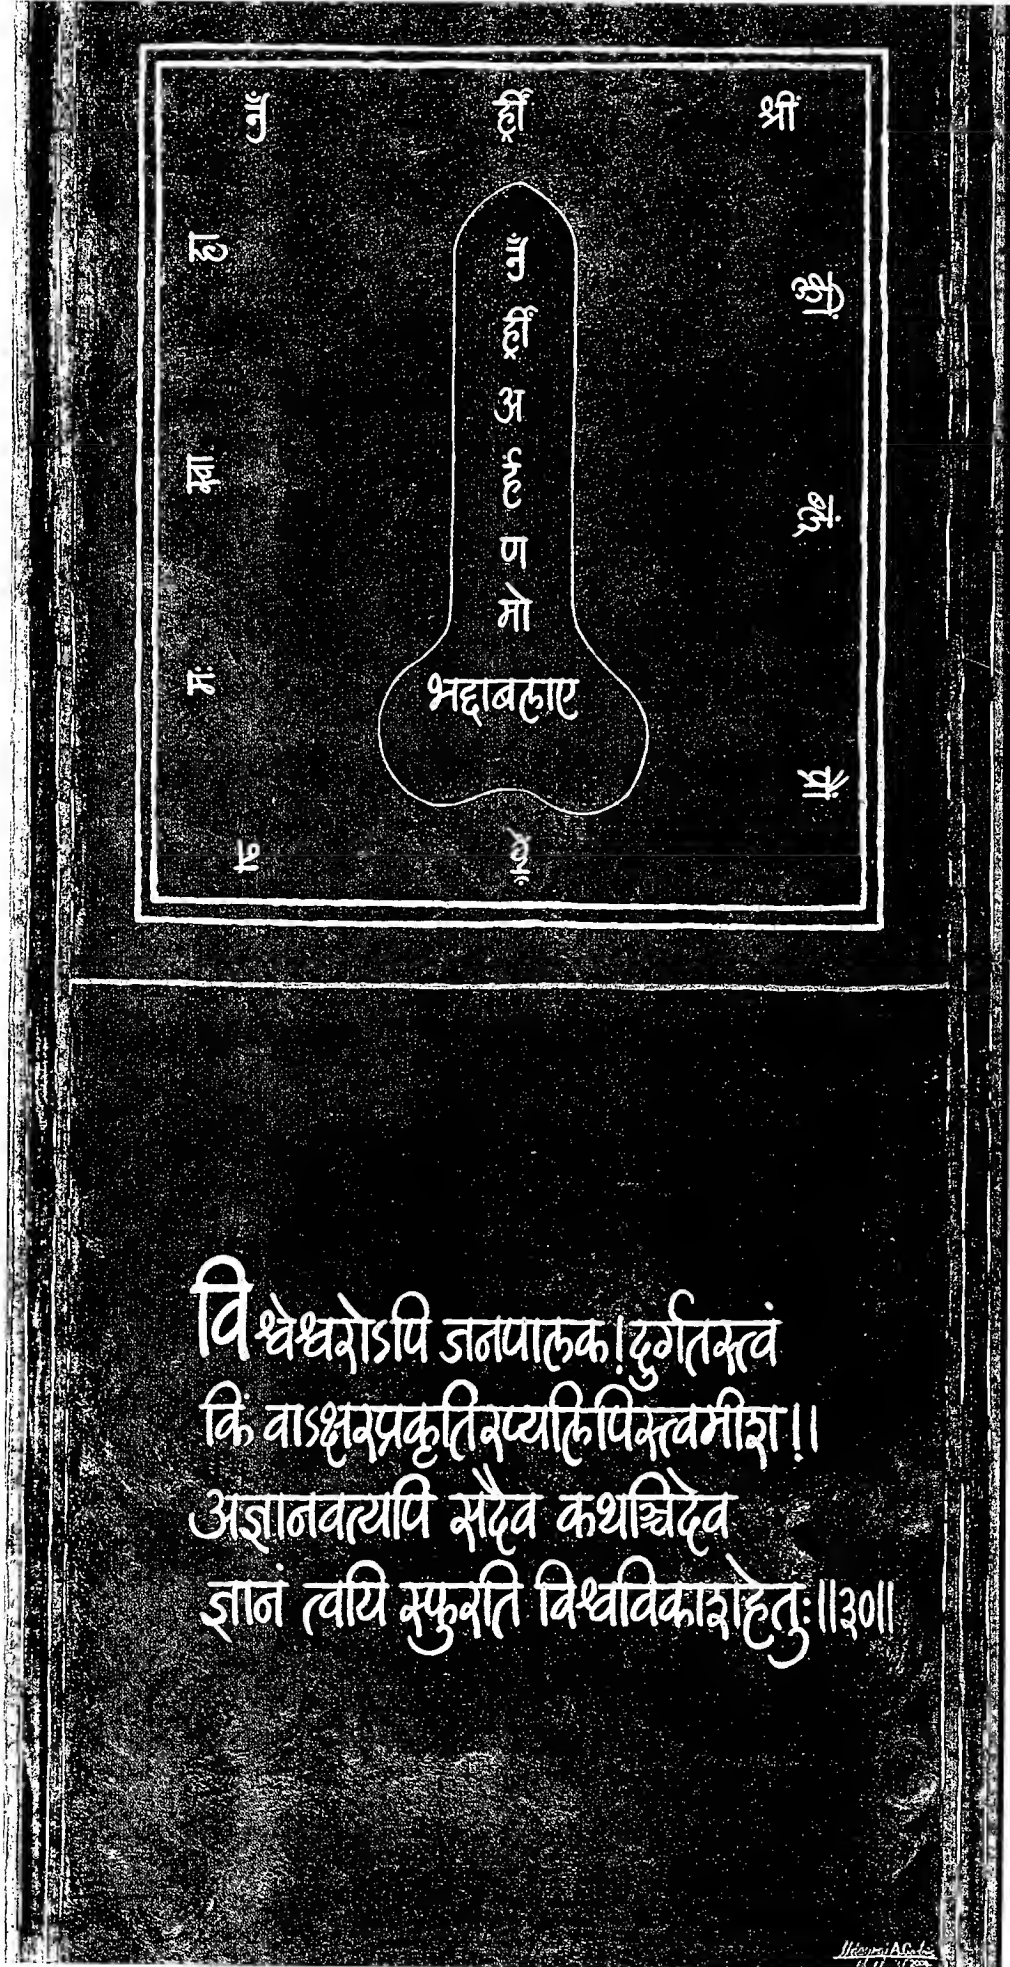 ॐ ह्रीं श्रीं
हा
क्लीं
स्वा
मः
न
ॐ
ह्रीं
अ
र्हं
ण
मो
भद्दाबलाए
विश्वेश्वरोऽपि जनपालक! दुर्गतस्त्वं
किं वाऽक्षरप्रकृतिरप्यलिपिस्त्वमीश!।
अज्ञानवत्यपि सदैव कथञ्चिदेव
ज्ञानं त्वयि स्फुरति विश्वविकाशहेतुः॥३०॥